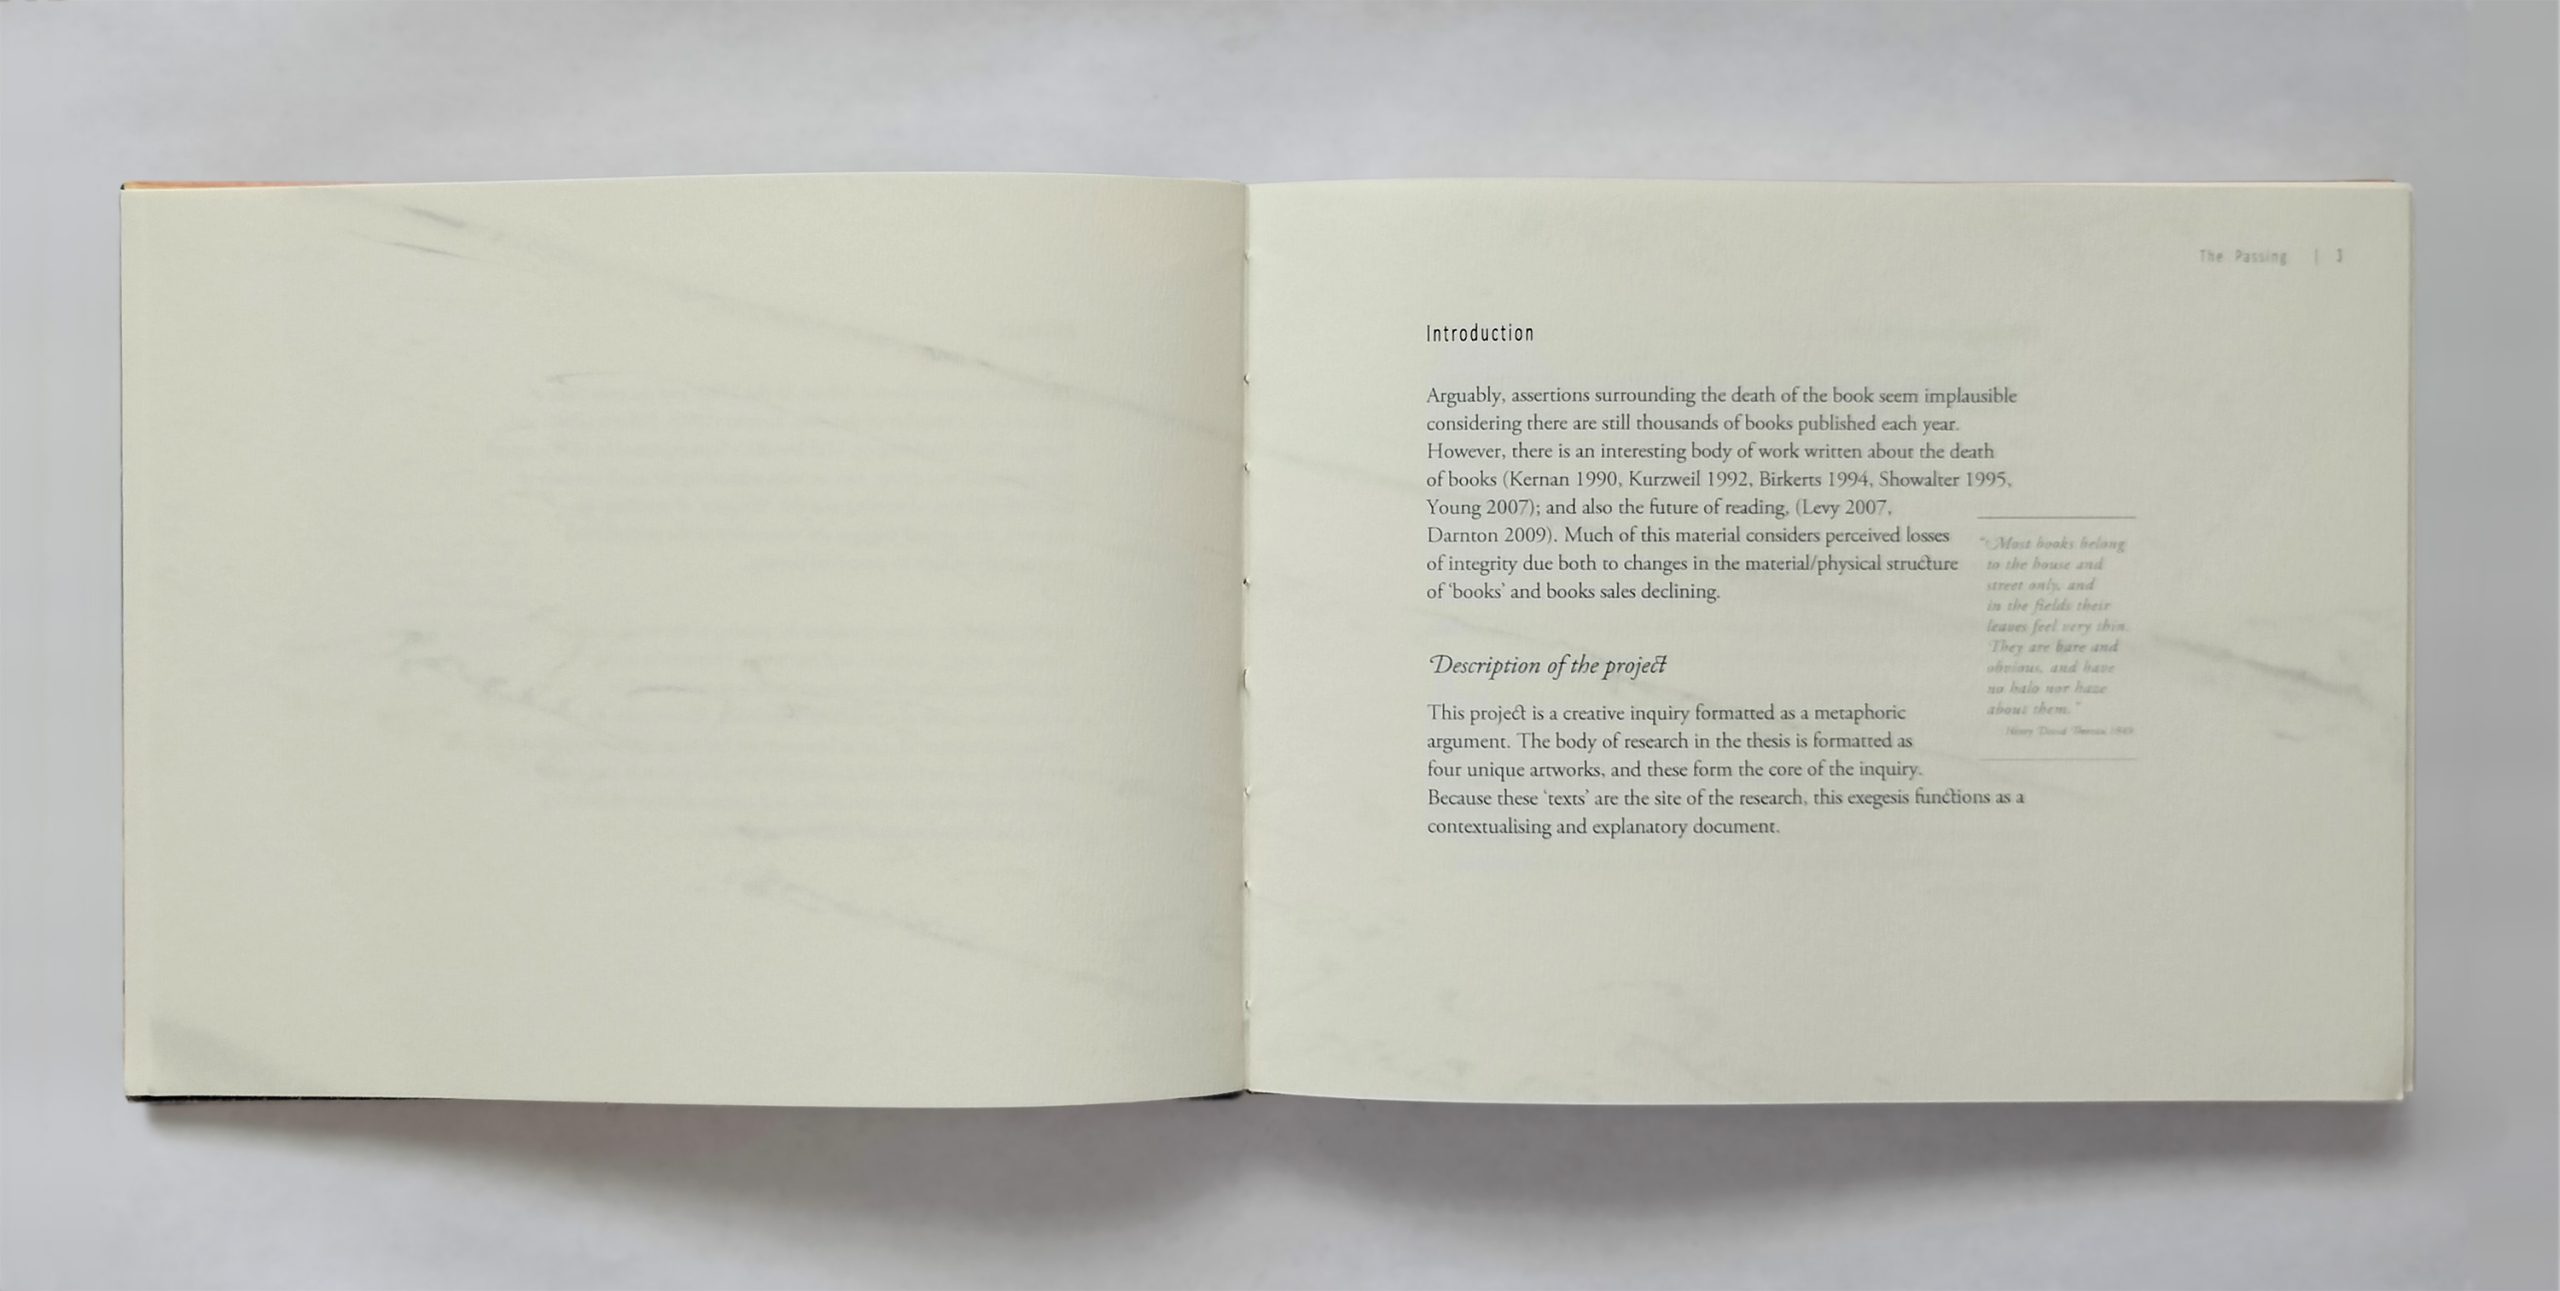 The Passing | 3
Introduction
Arguably, assertions surrounding the death of the book seem implausible
considering there are still thousands of books published each year.
However, there is an interesting body of work written about the death
of books (Kernan 1990, Kurzweil 1992, Birkerts 1994, Showalter 1995,
Young 2007); and also the future of reading, (Levy 2007,
Darnton 2009). Much of this material considers perceived losses
of integrity due both to changes in the material/physical structure
of ‘books’ and books sales declining.
“Most books belong
to the house and
street only, and
in the fields their
leaves feel very thin.
They are bare and
obvious, and have
no halo nor haze
about them.”
Henry David Thoreau
Description of the project
This project is a creative inquiry formatted as a metaphoric
argument. The body of research in the thesis is formatted as
four unique artworks, and these form the core of the inquiry.
Because these ‘texts’ are the site of the research, this exegesis functions as a
contextualising and explanatory document.